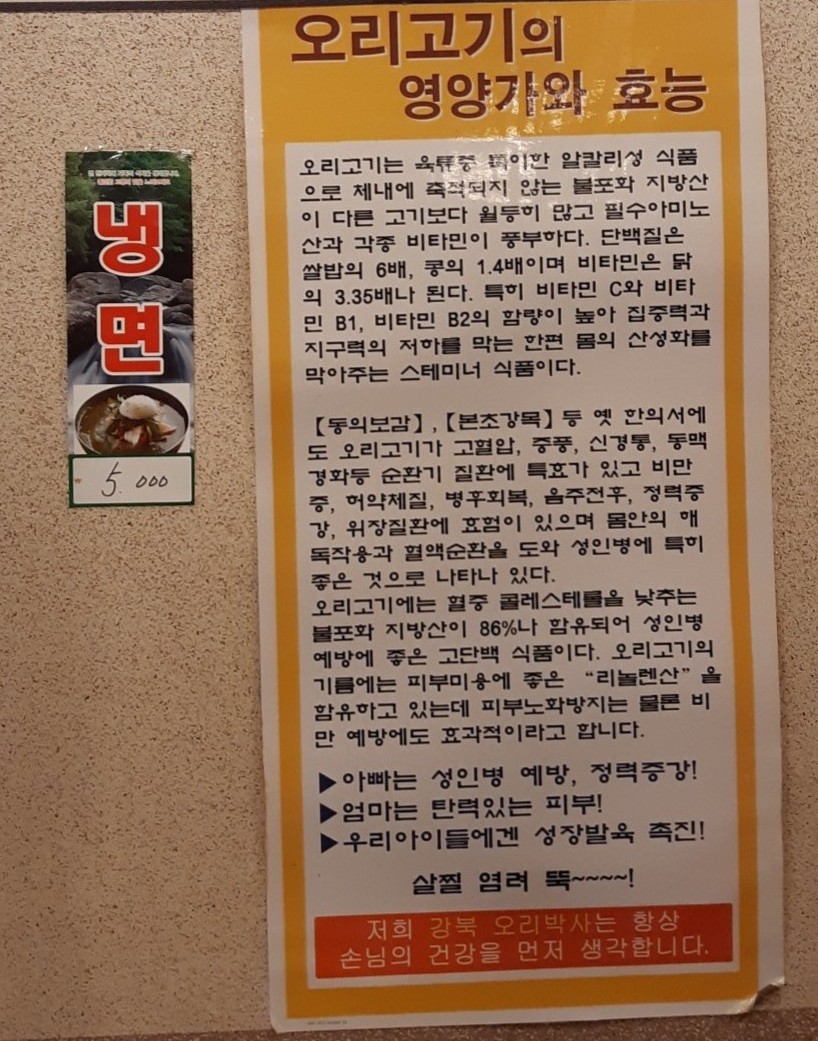 냉면
5.000
오리고기의
영양가와 효능
오리고기는 육류중 특이한 알칼리성 식품
으로 체내에 축적되지 않는 불포화 지방산
이 다른 고기보다 월등히 많고 필수아미노
산과 각종 비타민이 풍부하다. 단백질은
쌀밥의 6배, 콩의 1.4배이며 비타민은 닭
의 3.35배나 된다. 특히 비타민 C와 비타
민 B1, 비타민 B2의 함량이 높아 집중력과
지구력의 저하를 막는 한편 몸의 산성화를
막아주는 스테미너 식품이다.
【동의보감】,【본초강목】등 옛 한의서에
도 오리고기가 고혈압, 중풍, 신경통, 동맥
경화등 순환기 질환에 특효가 있고 비만
증, 허약체질, 병후회복, 음주전후, 정력증
강, 위장질환에 효험이 있으며 몸안의 해
독작용과 혈액순환을 도와 성인병에 특히
좋은 것으로 나타나 있다.
오리고기에는 혈중 콜레스테롤을 낮추는
불포화 지방산이 86%나 함유되어 성인병
예방에 좋은 고단백 식품이다. 오리고기의
기름에는 피부미용에 좋은 “리놀렌산”을
함유하고 있는데 피부노화방지는 물론 비
만 예방에도 효과적이라고 합니다.
▶아빠는 성인병 예방, 정력증강!
▶엄마는 탄력있는 피부!
▶우리아이들에겐 성장발육 촉진!
살찔 염려 뚝~~~~!
저희 강북 오리박사는 항상
손님의 건강을 먼저 생각합니다.